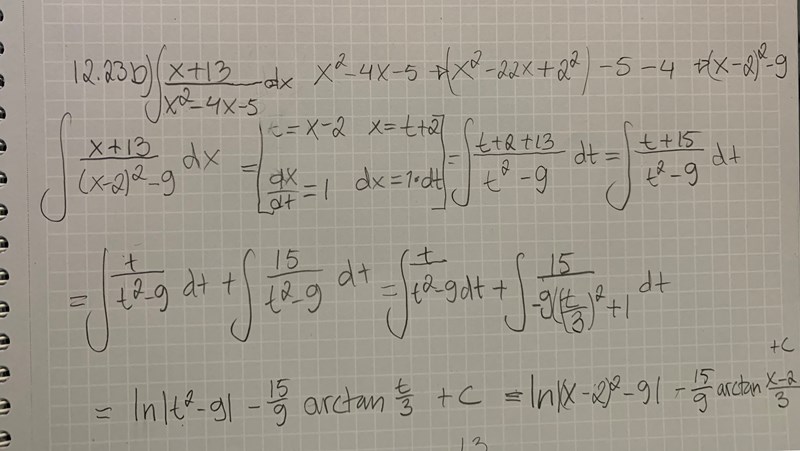 12.23b) ∫ (x+13)/(x²-4x-5) dx x²-4x-5 → (x²-22x+2²)-5-4 → (x-2)²-9
∫ (x+13)/((x-2)²-9) dx = [t=x-2 x=t+2 dx/dt=1 dx=1·dt] = ∫ (t+2+13)/(t²-9) dt = ∫ (t+15)/(t²-9) dt
= ∫ t/(t²-9) dt + ∫ 15/(t²-9) dt = ∫ t/(t²-9) dt + ∫ 15/(-9(t/3)²+1) dt
= ln|t²-9| - 15/9 arctan t/3 + C = ln|(x-2)²-9| - 15/9 arctan (x-2)/3 +C